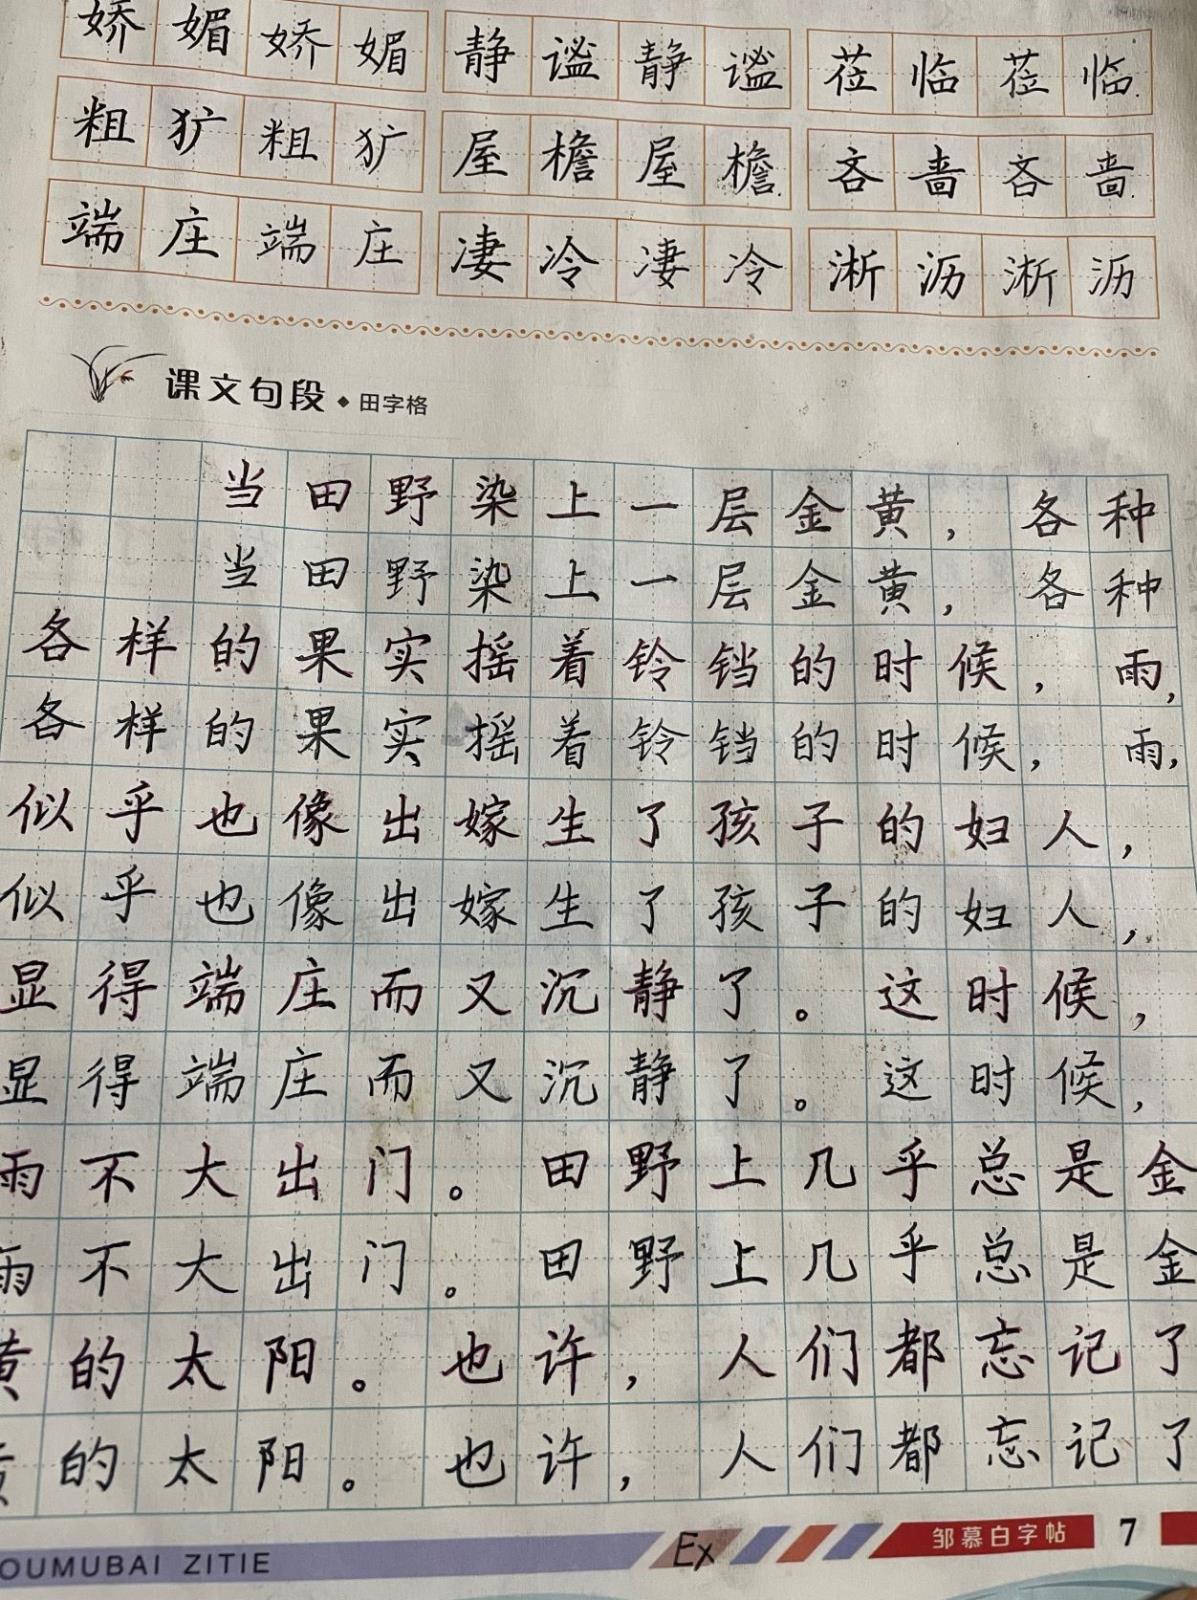 娇媚娇媚 静谧静谧 莅临莅临
粗犷粗犷 屋檐屋檐 吝啬吝啬
端庄端庄 凄冷凄冷 淅沥淅沥
课文句段◆田字格
当田野染上一层金黄，各种
当田野染上一层金黄，各种
各样的果实摇着铃铛的时候，雨，
各样的果实摇着铃铛的时候，雨，
似乎也像出嫁生了孩子的妇人，
似乎也像出嫁生了孩子的妇人，
显得端庄而又沉静了。这时候，
显得端庄而又沉静了。这时候，
雨不大出门。田野上几乎总是金
雨不大出门。田野上几乎总是金
黄的太阳。也许，人们都忘记了
黄的太阳。也许，人们都忘记了
OUMUBAI ZITIE Ex 邹慕白字帖 7